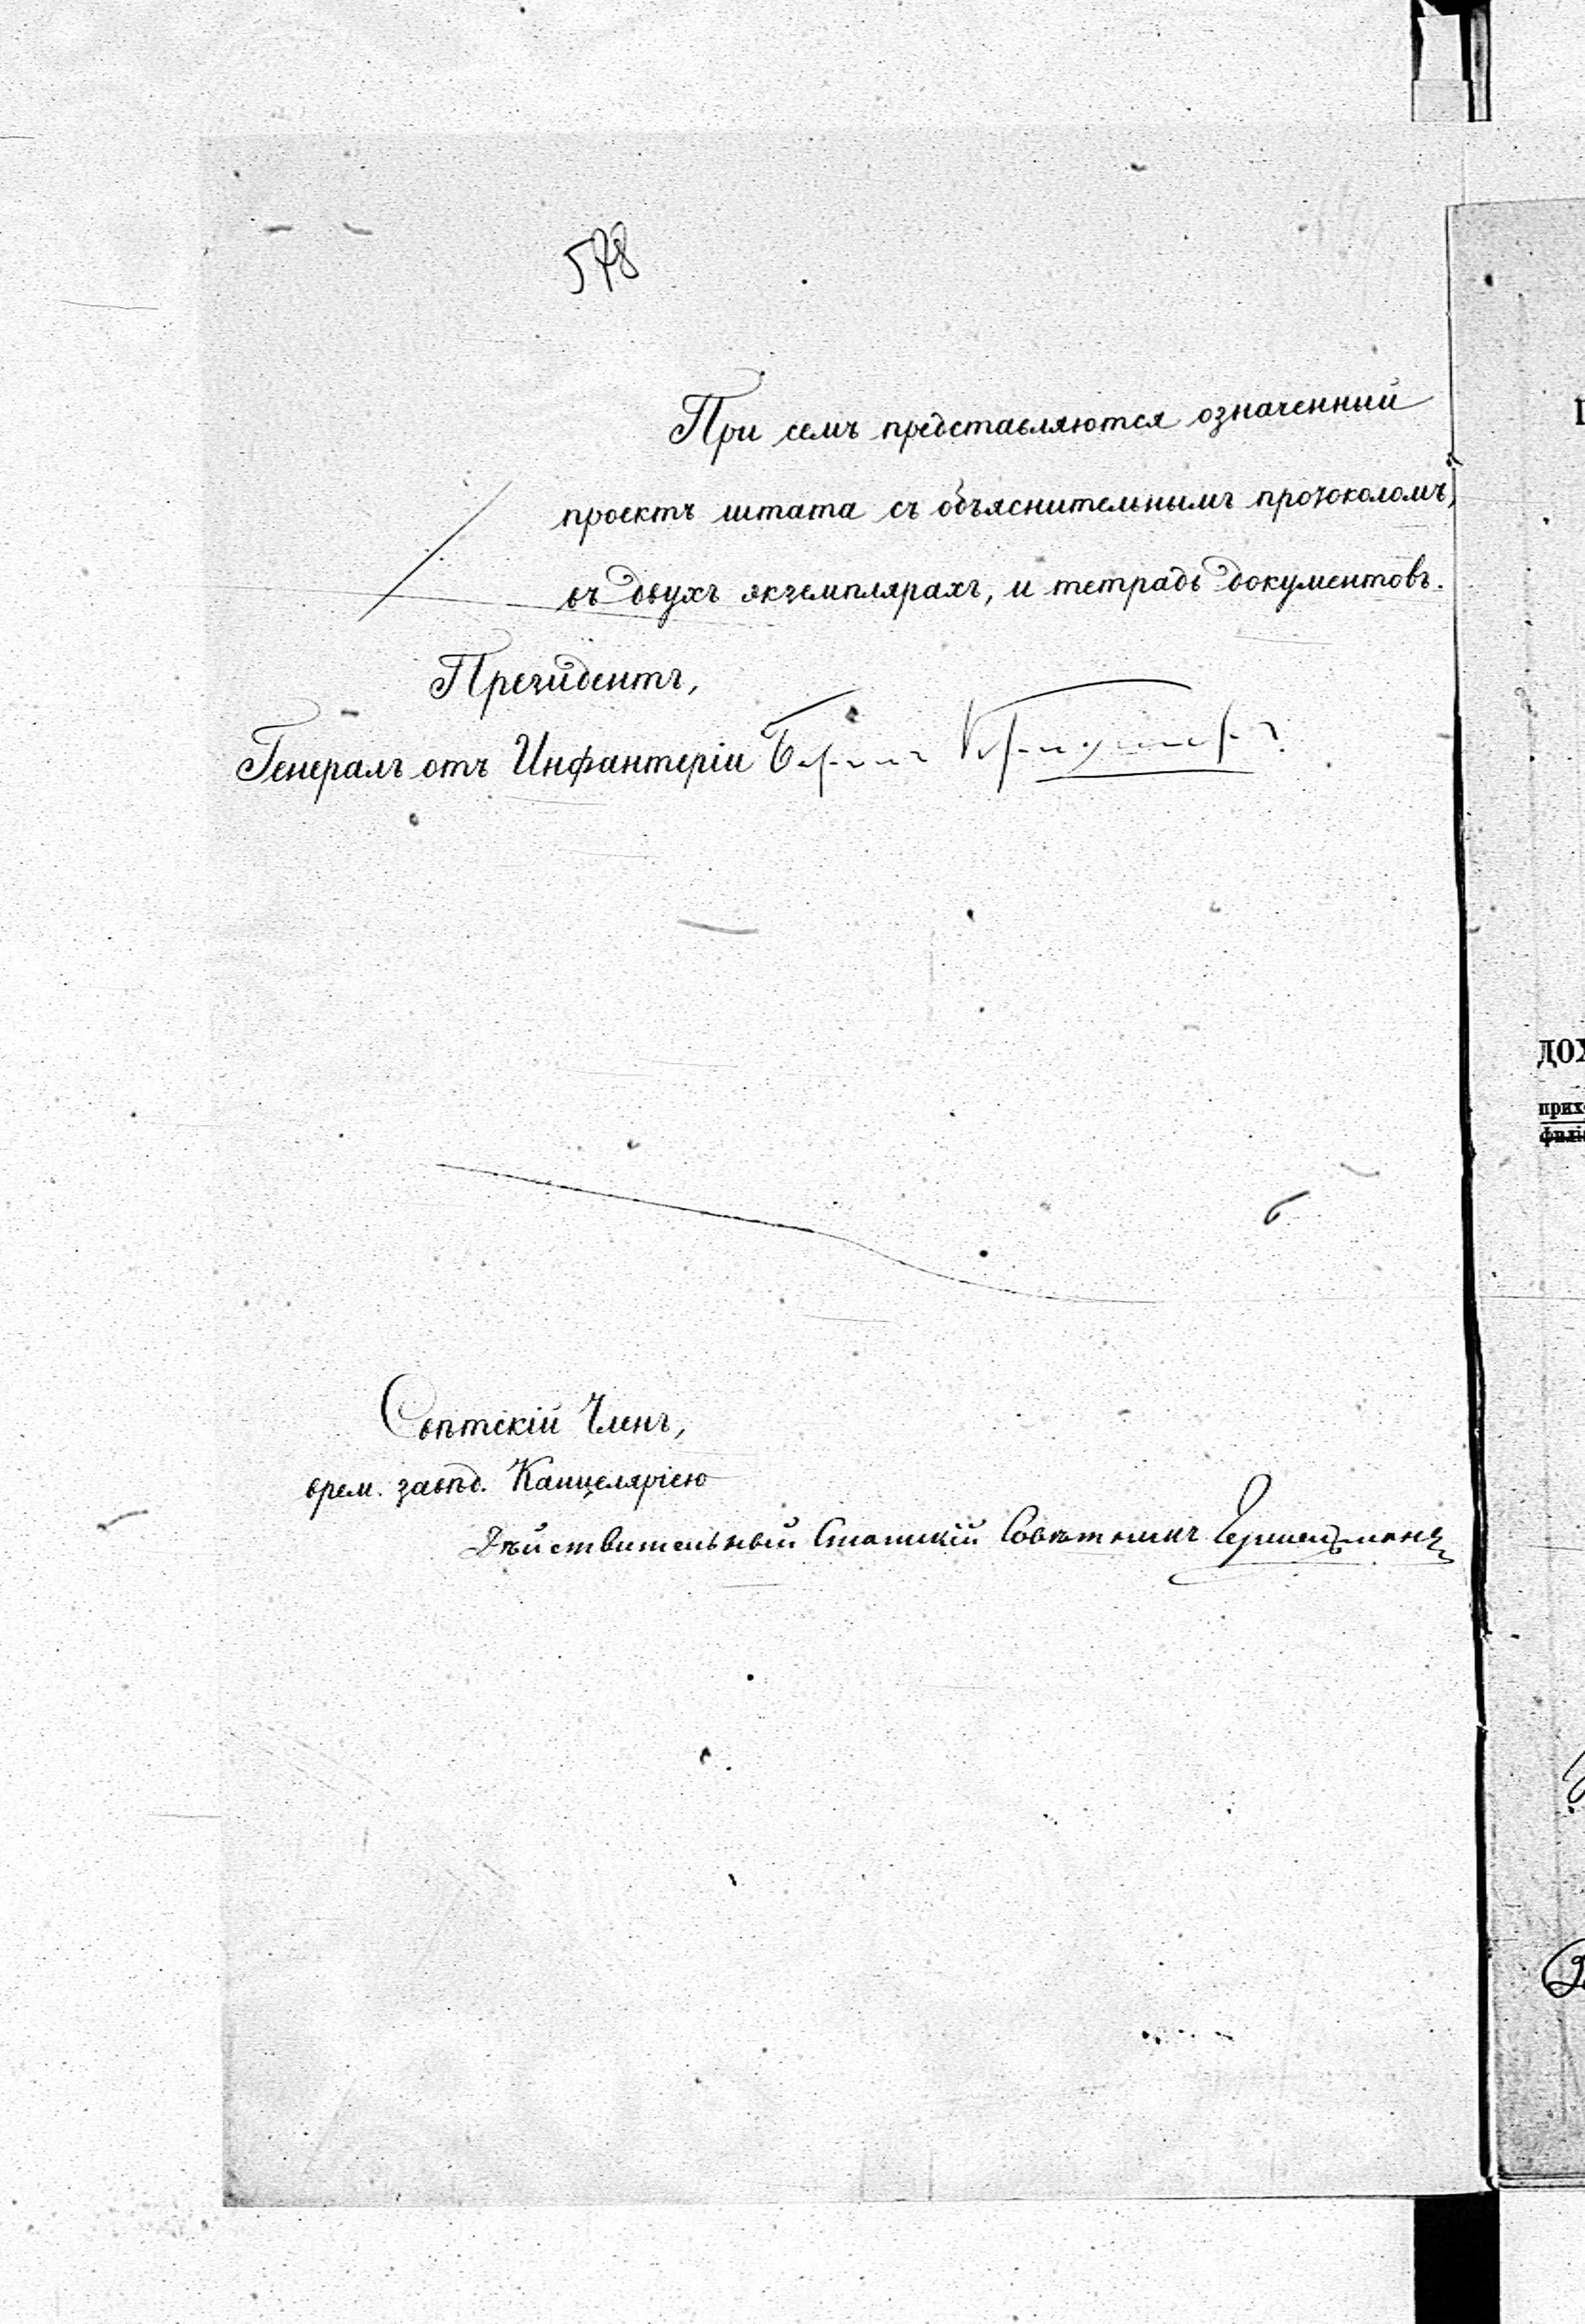 578
При семъ представляются означенный
проектъ штата съ объяснительнымъ протоколомъ,
въ двухъ экземплярахъ, и тетрадь документовъ.
Президентъ,
Генералъ отъ Инфантеріи Баронъ
Свѣтскій Членъ,
врем. завѣд. Канцеляріею
Дѣйствительный Статскій Совѣтникъ
ДОХ
прих
филі